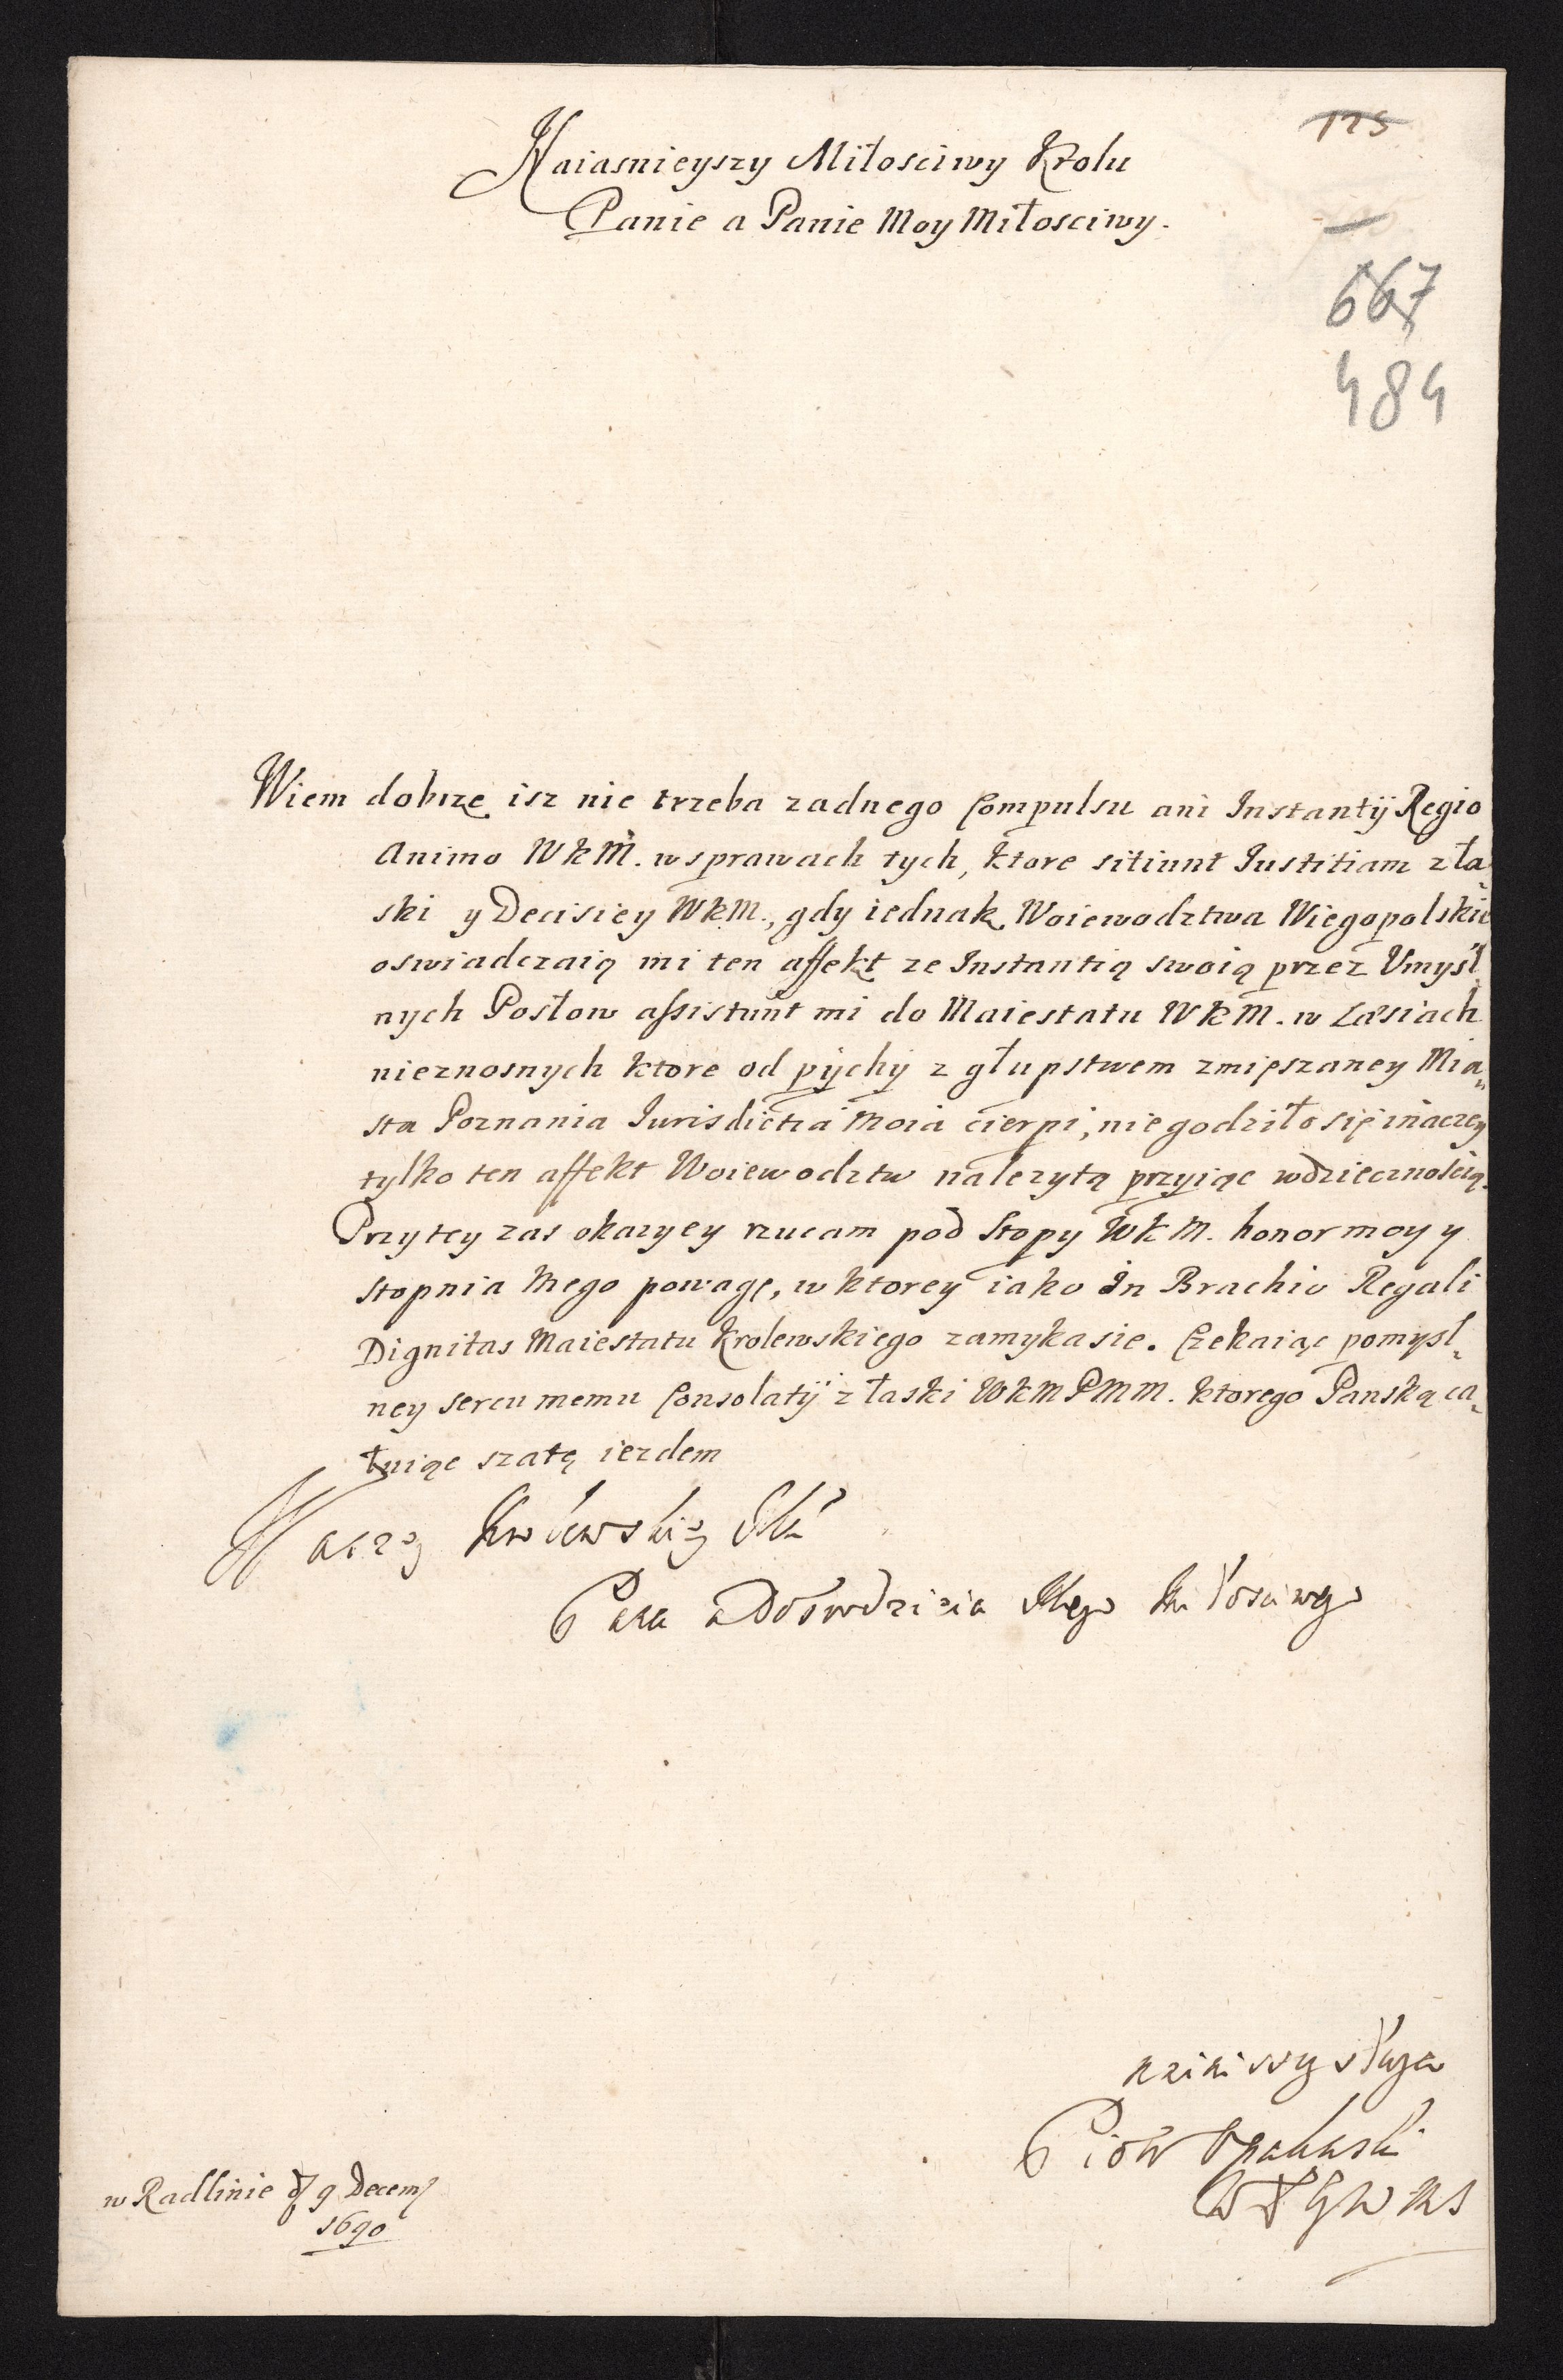 Naiasnieyszy Miłosciwy Krolu
Panie a Panie Moy Miłosciwy.
125
667
484
Wiem dobrze isz nie trzeba zadnego Compulsu ani Instantÿ Regio
Animo WKM. w sprawach tych, ktore sitiunt Iustitiam z ła
ski y Decisiey WKM., gdy iednak Woiewodztwa Wiegopolskie
oswiadczaią mi ten affekt ze Instantią swoią przez Vmysl
nych Posłow assistunt mi do Maiestatu WKM. w Læsiach
nieznosnych ktore od pÿchÿ z głupstwem zmięszaney Mia
sta Poznania Iurisdictia Moia cierpi, nie godziło się inaczey
tylko ten affekt Woiewodztw nalezytą przyiąc wdziecznoscią.
Przy tey zas okazyey rzucam pod Stopy WKM. honor moy y
stopnia Mego powagę, w ktorey iako in Brachio Regali
Dignitas Maiestatu Krolewskiego zamyka sie. Czekaiąc pomysl
ney sercu memu Consolatÿ z łaski WKM PMM. ktorego Panską ca
łuiąc szatę iezdem
Waszey Krolewskiey Mci
Pana a Dobrodzieia Mego Miłosciwego
nainiszy sługa
Piotr Opalinski
w Radlinie d 9 Decem
1690